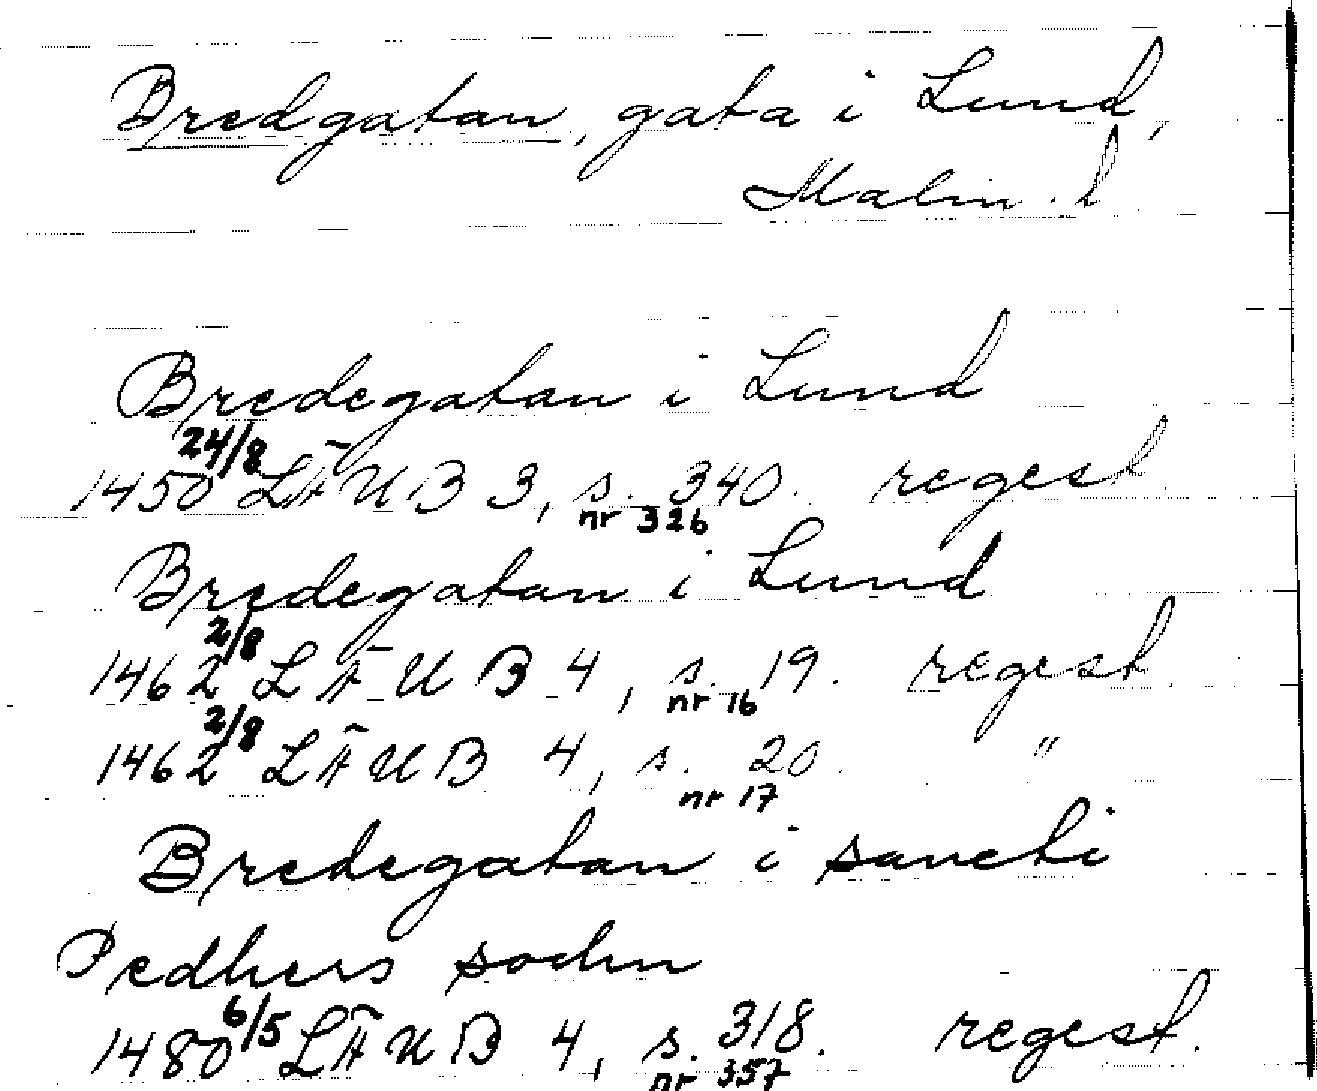 Bredgatan, gata i Lund,
Malm. l
Bredegatan i Lund
1450 24/8 LÄUB 3, s. 340. regest
nr 326
Bredegatan i Lund
1462 2/8 LÄUB 4, s. 19. regest
nr 16
1462 2/8 LÄUB 4, s. 20. "
nr 17
Bredegatan i sancti
Pedhers sochn
1480 6/5 LÄUB 4, s. 318. regest.
nr 357